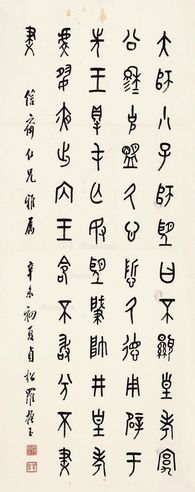 大師小子師望曰不顯皇考宄
公穆克盟厥心悊厥德用辟于
先王得屯亡敃望肇帥井皇考
虔夙夜出內王命不敢分不妻
信齋仁兄雅屬 辛未初夏貞松羅振玉